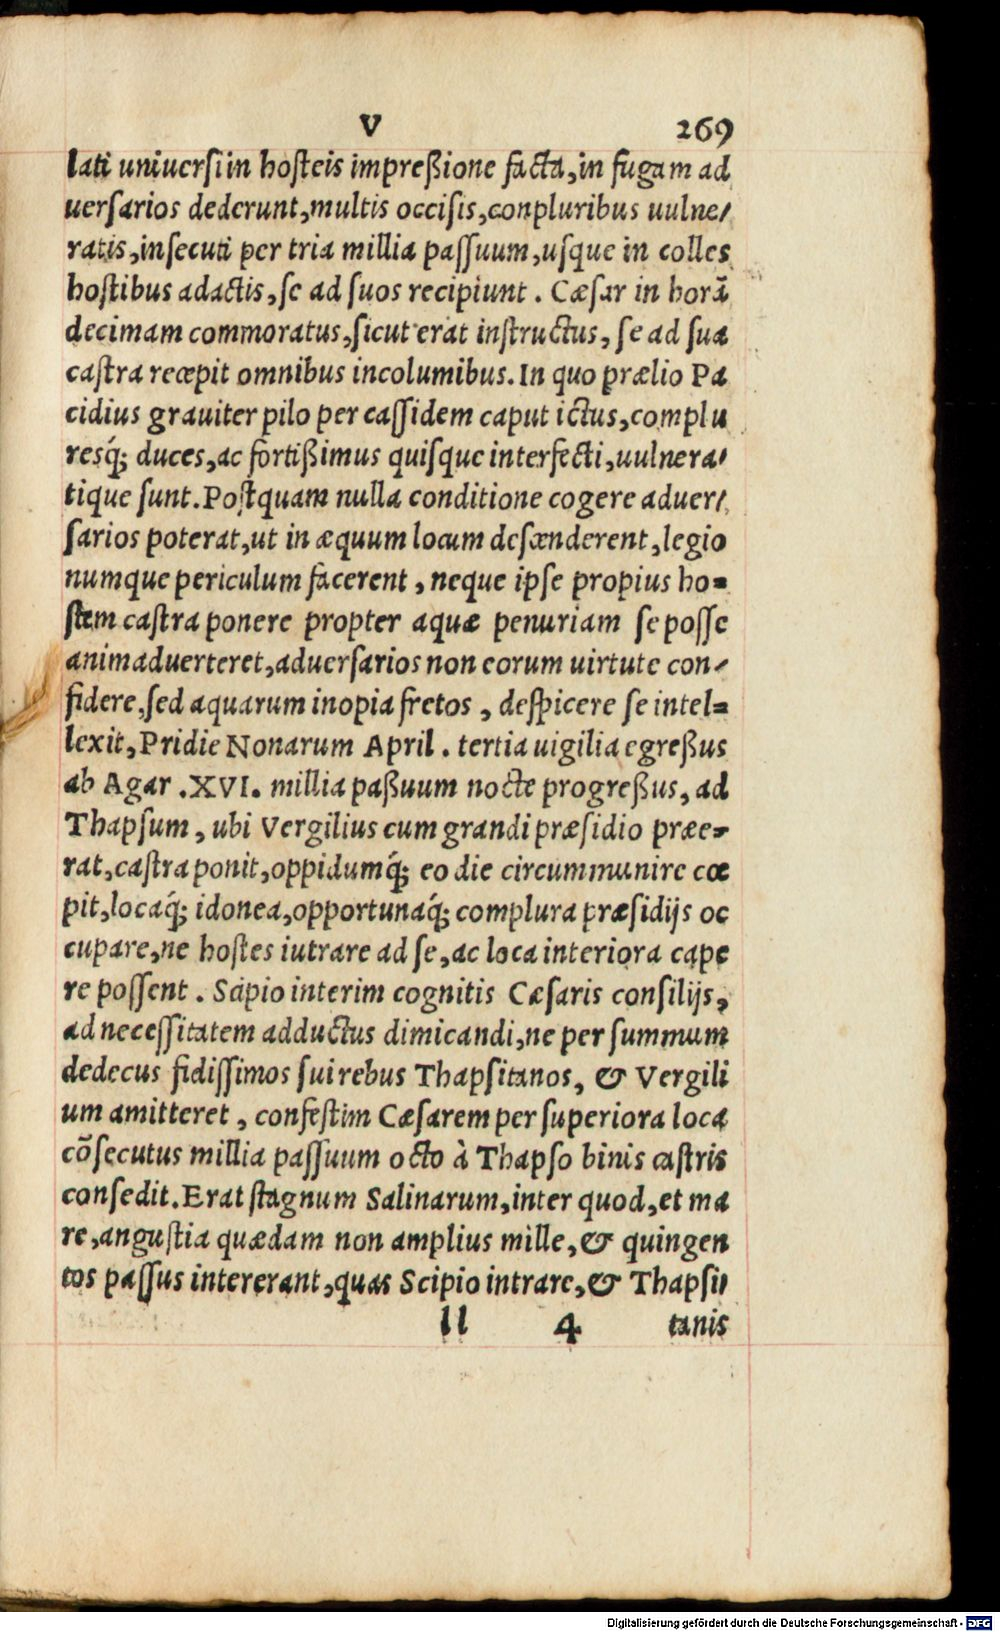 V 269
lati uniuersi in hosteis impreßione facta, in fugam ad
uersarios dederunt, multis occisis, conpluribus uulne/
ratis, insecuti per tria millia passuum, usque in colles
hostibus adactis, se ad suos recipiunt. Cæsar in horā
decimam commoratus, sicut erat instructus, se ad sua
castra recepit omnibus incolumibus. In quo prælio Pa
cidius grauiter pilo per cassidem caput ictus, complu
resq́; duces, ac fortißimus quisque interfecti, uulnera/
tique sunt. Postquam nulla conditione cogere aduer/
sarios poterat, ut in æquum locum descenderent, legio
numque periculum facerent, neque ipse propius ho=
stem castra ponere propter aquæ penuriam se posse
animaduerteret, aduersarios non eorum uirtute con/
fidere, sed aquarum inopia fretos, despicere se intel=
lexit, Pridie Nonarum April. tertia uigilia egreßus
ab Agar .XVI. millia paßuum nocte progreßus, ad
Thapsum, ubi Vergilius cum grandi præsidio præe=
rat, castra ponit, oppidumq́; eo die circummunire cœ
pit, locaq́; idonea, opportunaq́; complura præsidijs oc
cupare, ne hostes iutrare ad se, ac loca interiora cape
re possent. Scipio interim cognitis Cæsaris consilijs,
ad necessitatem adductus dimicandi, ne per summum
dedecus fidissimos sui rebus Thapsitanos, & Vergili
um amitteret, confestim Cæsarem per superiora loca
cōsecutus millia passuum octo à Thapso binis castris
consedit. Erat stagnum Salinarum, inter quod, et ma
re, angustia quædam non amplius mille, & quingen
tos passus intererant, quas Scipio intrare, & Thapsi/
ll 4 tanis
Digitalisierung gefördert durch die Deutsche Forschungsgemeinschaft - DFG